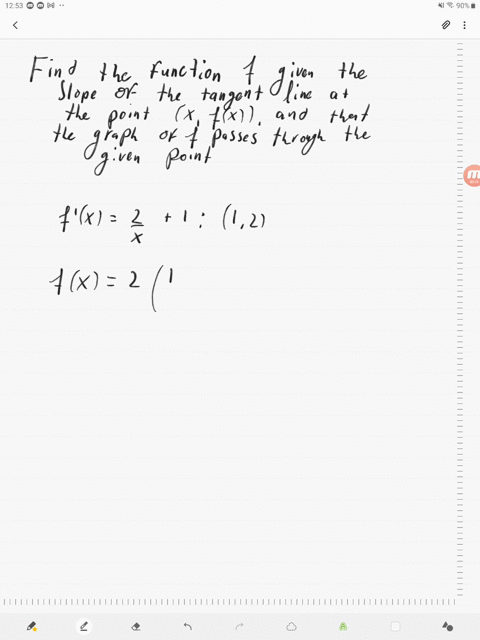 12:53
90%
Find the function f given the
Slope of the tangent line at
the point (x, f(x)), and that
the graph of f passes through the
given point
f'(x) = 2/x + 1 ; (1, 2)
f(x) = 2 ( 1